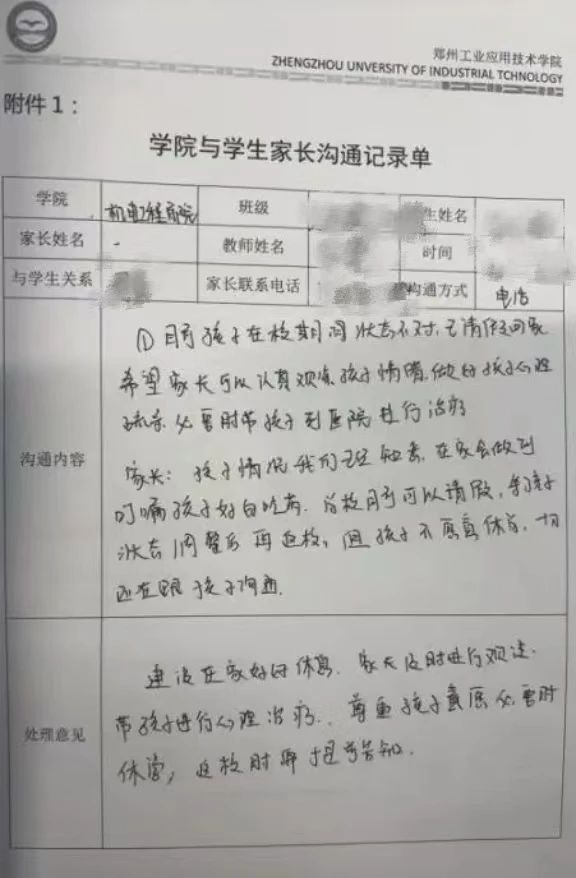 郑州工业应用技术学院
ZHENGZHOU UNVERSITY OF INDUSTRIAL TCHNOLOGY
附件1：
学院与学生家长沟通记录单
学院 机电工程学院 班级 生姓名
家长姓名 - 教师姓名 时间
与学生关系 家长联系电话 沟通方式 电话
沟通内容
① 目前孩子在校期间状态不对,已请假回家
希望家长可以认真观察孩子情绪,做好孩子心理
疏导,必要时带孩子到医院进行治疗
家长：孩子情况我们已经知悉,在家会做到
叮嘱孩子好好吃药,学校目前可以请假,等孩子
状态调整后再返校,但孩子不愿意休学,
还在跟孩子沟通.
处理意见
建议在家好好休息,家长及时进行观注.
带孩子进行心理治疗.尊重孩子意愿必要时
休学,返校时提前告知.